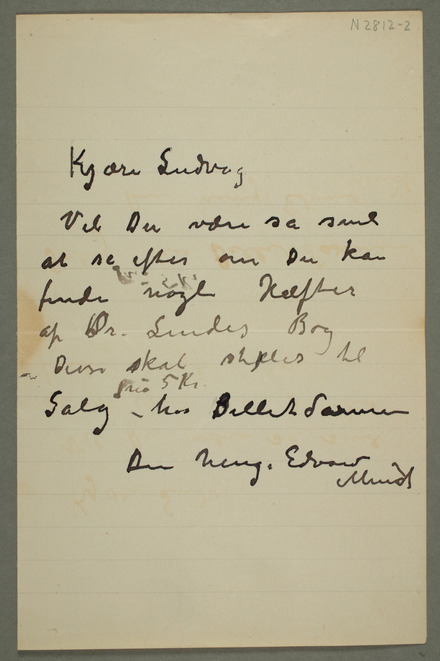 N 2812-2
Kjære Ludvig
Vil Du være så snil
at se efter om Du kan
finde nogle Hæfter
af Dr. Lindes Bog
– Disse skal stilles til
pris 5 Kr.
Salg – hos Billetdamen
Din heng. Edvard
Munch